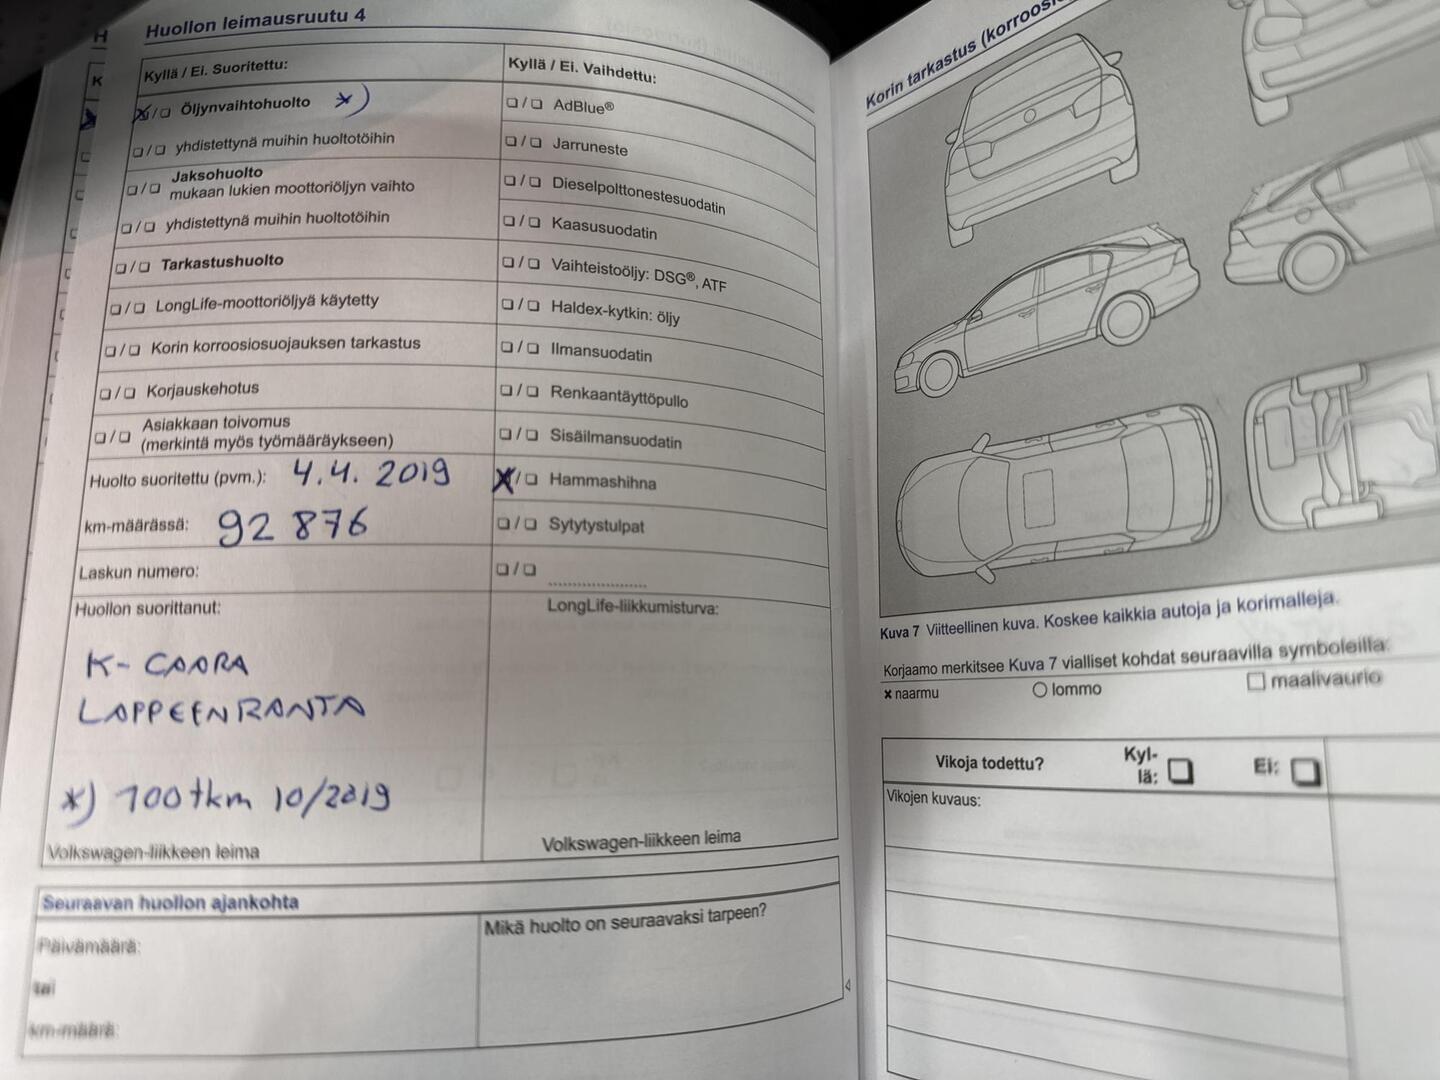 Huollon leimausruutu 4
Kyllä / Ei. Suoritettu:
Öljynvaihtohuolto *)
yhdistettynä muihin huoltotöihin
Jaksohuolto
mukaan lukien moottoriöljyn vaihto
yhdistettynä muihin huoltotöihin
Tarkastushuolto
LongLife-moottoriöljyä käytetty
Korin korroosiosuojauksen tarkastus
Korjauskehotus
Asiakkaan toivomus
(merkintä myös työmääräykseen)
Huolto suoritettu (pvm.): 4.4. 2019
km-määrässä: 92 876
Laskun numero:
Huollon suorittanut:
K-CAARA
LAPPEENRANTA
*) 100 tkm 10/2019
Volkswagen-liikkeen leima
Kyllä / Ei. Vaihdettu:
AdBlue®
Jarruneste
Dieselpolttonestesuodatin
Kaasusuodatin
Vaihteistoöljy: DSG®, ATF
Haldex-kytkin: öljy
Ilmansuodatin
Renkaantäyttöpullo
Sisäilmansuodatin
Hammashihna
Sytytystulpat
....................
LongLife-liikkumisturva:
Volkswagen-liikkeen leima
Seuraavan huollon ajankohta
Päivämäärä:
tai
km-määrä:
Mikä huolto on seuraavaksi tarpeen?
Korin tarkastus
Kuva 7 Viitteellinen kuva. Koskee kaikkia autoja ja korimalleja.
Korjaamo merkitsee Kuva 7 vialliset kohdat seuraavilla symboleilla:
× naarmu ○ lommo □ maalivaurio
Vikoja todettu? Kyl-
lä: Ei:
Vikojen kuvaus: